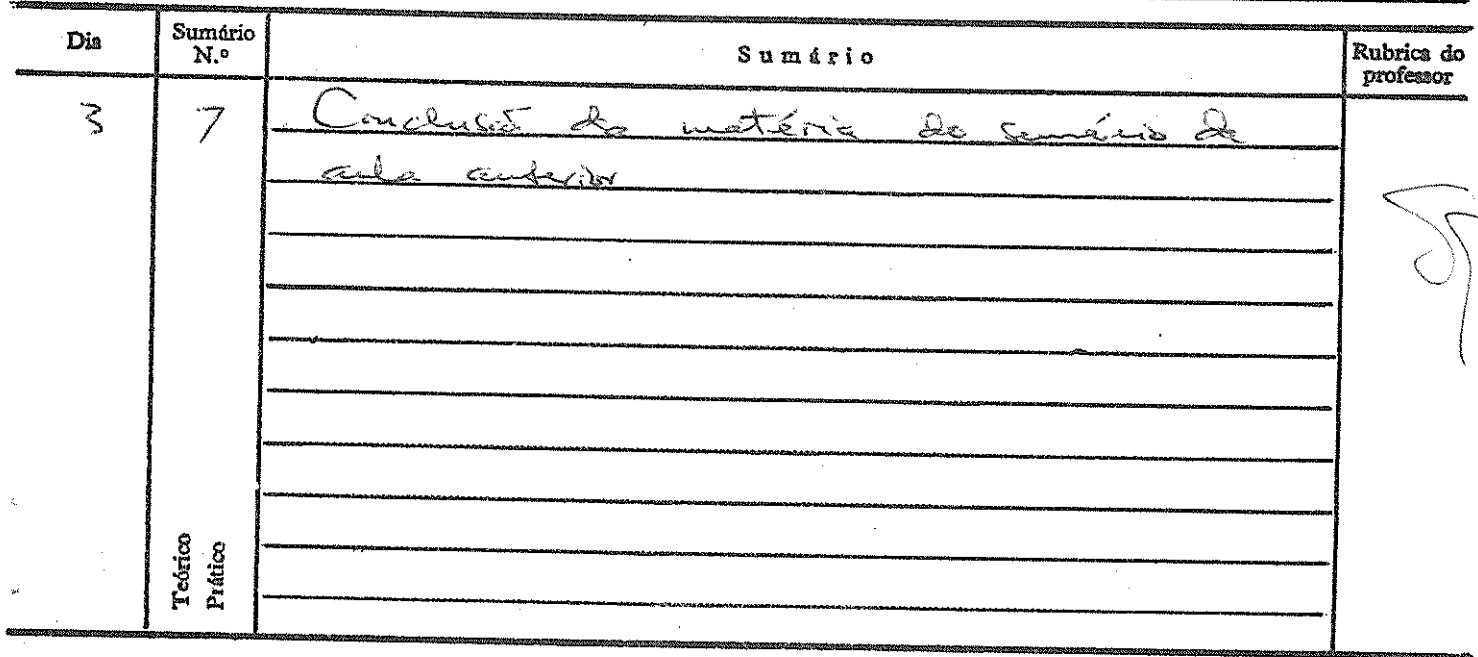 Dia Sumário N.º Sumário Rubrica do professor
3 7 Conclusão da matéria do sumário da
aula anterior
Teórico
Prático